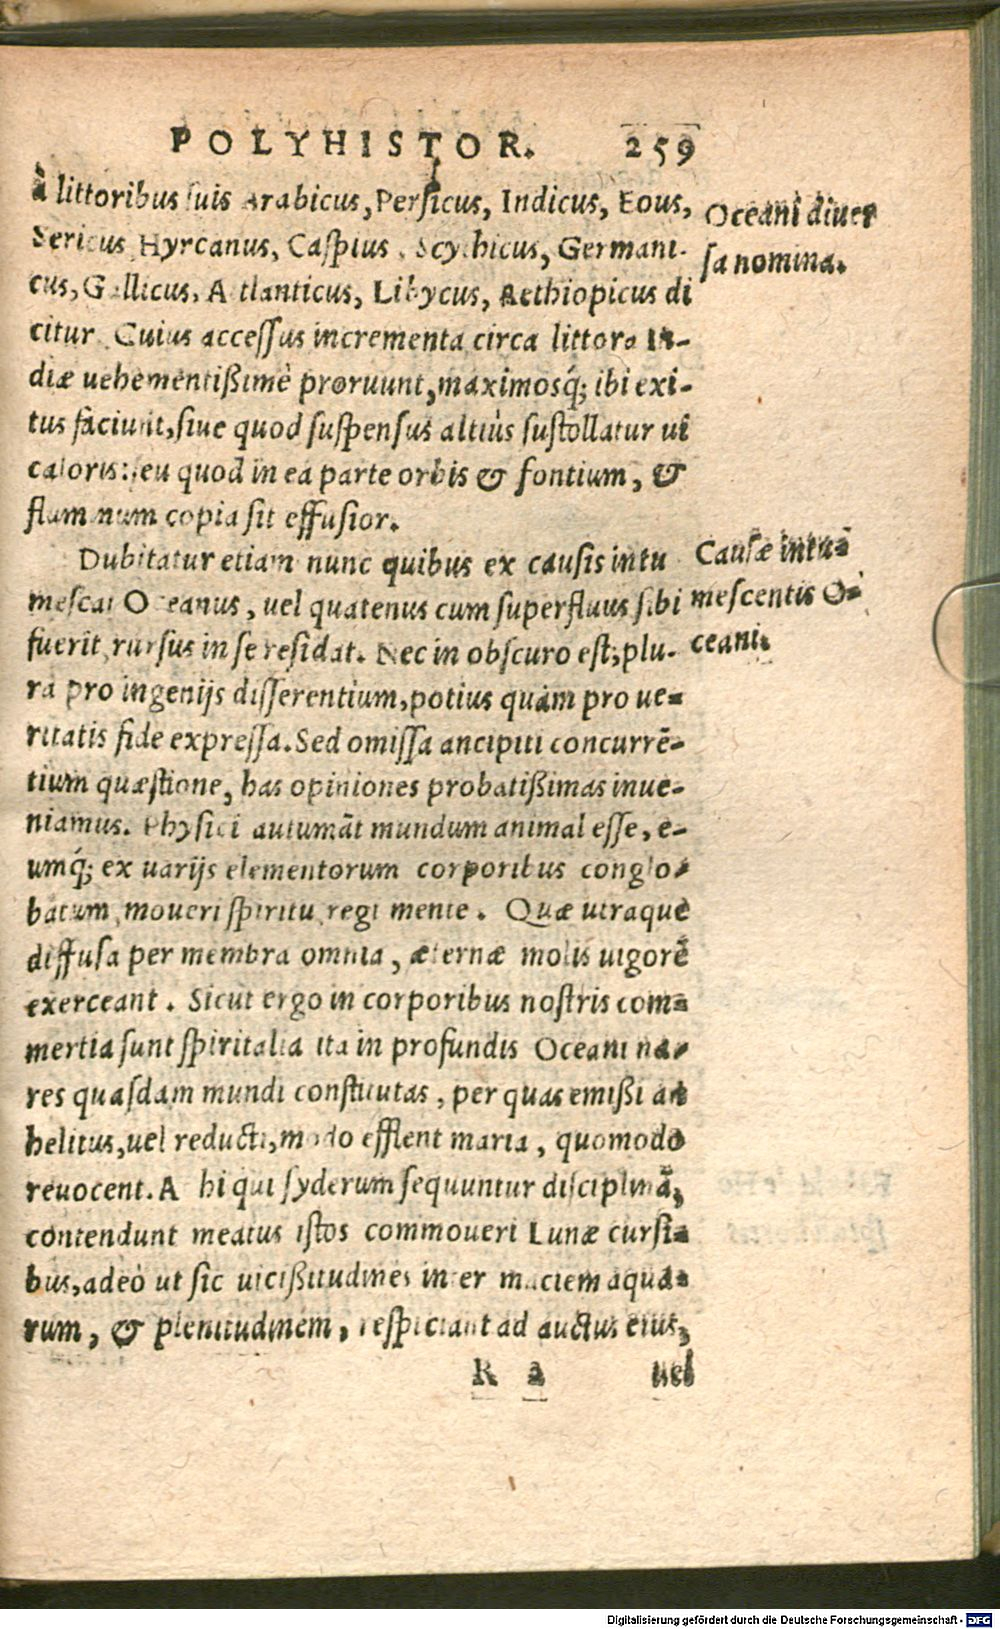 POLYHISTOR. 259
à littoribus suis Arabicus, Persicus, Indicus, Eous,
Sericus Hyrcanus, Caspius, Scythicus, Germani-
cus, Gallicus, Atlanticus, Libycus, Aethiopicus di
citur. Cuius accessus incrementa circa littora In-
diæ uehementißimè proruunt, maximosq́; ibi exi-
tus faciunt, siue quod suspensus altiùs sustollatur ui
caloris: seu quod in ea parte orbis & fontium, &
fluminum copia sit effusior.
Dubitatur etiam nunc quibus ex causis intu
mescat Oceanus, uel quatenus cum superfluus sibi
fuerit, rursus in se residat. Nec in obscuro est, plu-
ra pro ingenijs disserentium, potius quàm pro ue-
ritatis fide expressa. Sed omissa ancipiti concurrē-
tium quæstione, has opiniones probatißimas inue-
niamus. Physici autumāt mundum animal esse, e-
umq́; ex uarijs elementorum corporibus conglo-
batum, moueri spiritu, regi mente. Quæ utraque
diffusa per membra omnia, æternæ molis uigorē
exerceant. Sicut ergo in corporibus nostris com-
mertia sunt spiritalia ita in profundis Oceani na-
res quasdam mundi constitutas, per quas emißi an
helitus, uel reducti, modo efflent maria, quomodo
reuocent. A hi qui syderum sequuntur disciplinā,
contendunt meatus istos commoueri Lunæ cursi-
bus, adeò ut sic uicißitudines inter maciem aqua-
rum, & plenitudinem, respiciant ad auctus eius,
R 2 uel
Oceani diuer
sa nomina.
Causæ intu-
mescentis O-
ceani.
Digitalisierung gefördert durch die Deutsche Forschungsgemeinschaft - DFG